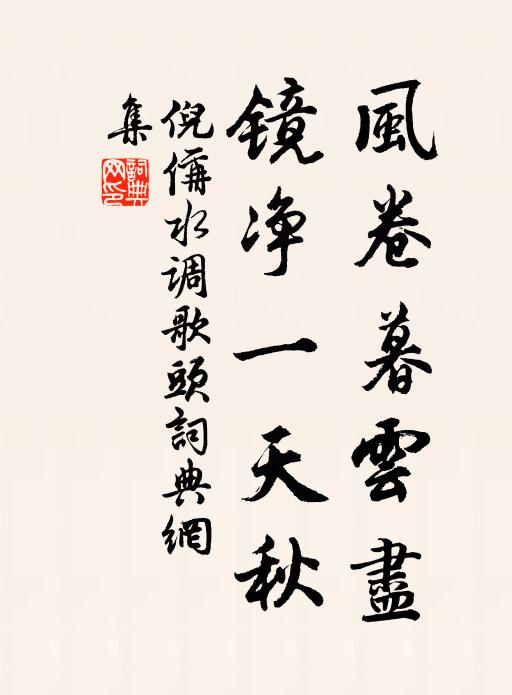 風卷暮雲盡
鏡净一天秋
倪偁水調歌頭詞典網
集
詞典網印